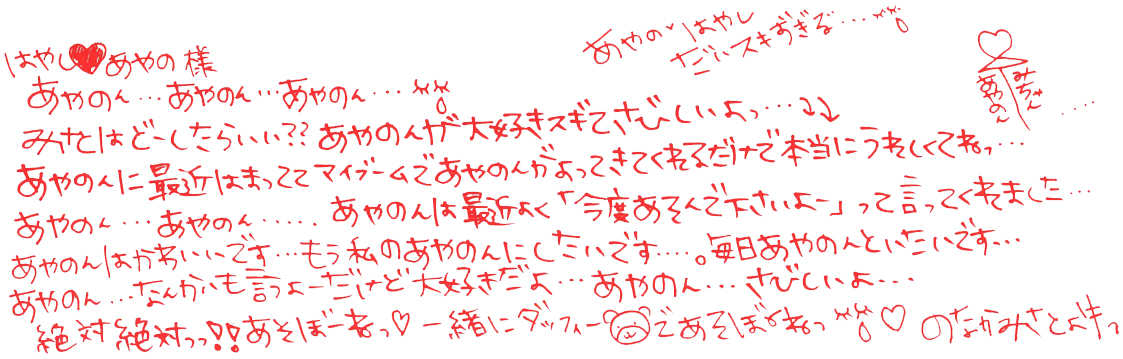 はやし♥あやの様
あやの・はやし
だいスキすぎる…
みちゃん
あやのん
あやのん…あやのん…あやのん…
みさとはどーしたらいい??あやのんが大好きスギてさびしいよっ…↓↓
あやのんに最近はまっててマイブームであやのんがよってきてくれるだけで本当にうれしくてねっ…
あやのん…あやのん……あやのんは最近よく「今度あそんで下さいよー」って言ってくれました…
あやのんはかわいいです…もう私のあやのんにしたいです….。毎日あやのんといたいです…
あやのん…なんかいも言うよーだけど大好きだよ…あやのん…さびしいよ…
絶対絶対っっ!!あそぼーねっ♡一緒にダッフィーであそぼーねっ♡のなかみさとより